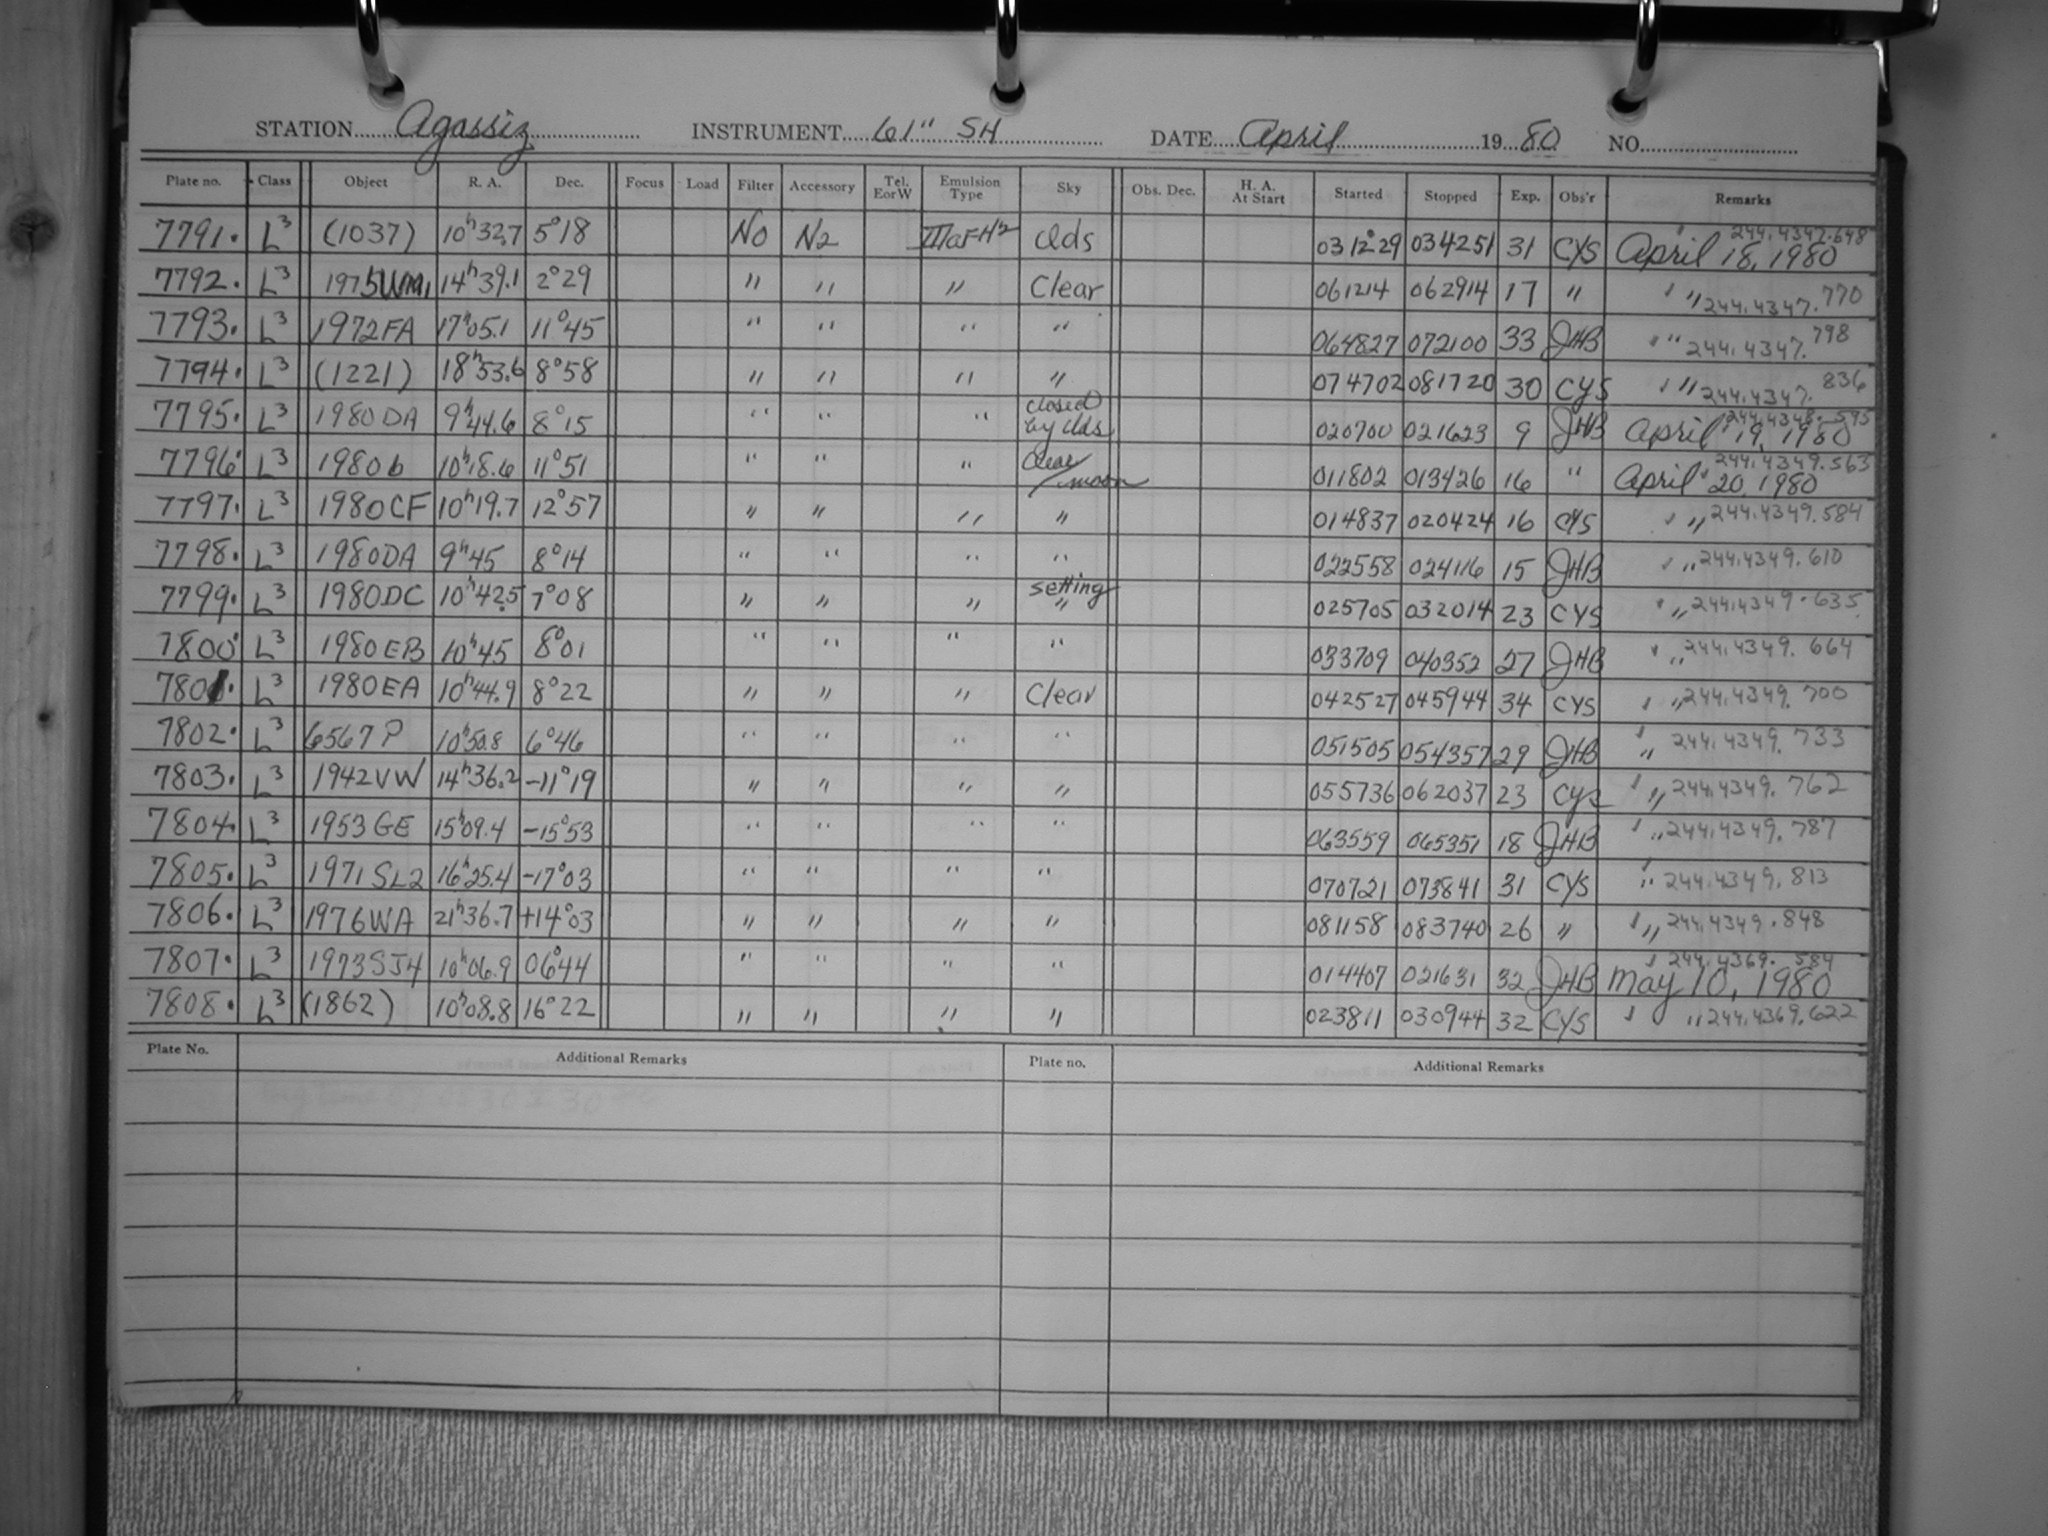 STATION Agassiz INSTRUMENT 61" SH DATE April 19 80 NO.
Plate no. Class Object R. A. Dec. Focus Load Filter Accessory Tel. EorW Emulsion Type Sky Obs. Dec. H. A. At Start Started Stopped Exp. Obs'r Remarks
7791. L³ (1037) 10ʰ32.7 5°18 No N2 IIIaF-H² Clds 031229 034251 31 CYS April 18, 1980 244.4347.648
7792. L³ 1975 14ʰ39.1 2°29 " " " Clear 061214 062914 17 " " 244.4347.770
7793. L³ 1972FA 17ʰ05.1 11°45 " " " " 064827 072100 33 JHB " 244.4347.798
7794. L³ (1221) 18ʰ53.6 8°58 " " " " 074702 081720 30 CYS " 244.4347.836
7795. L³ 1980DA 9ʰ44.6 8°15 " " " closed by clds 020700 021623 9 JHB April 19, 1980 244.4348.595
7796. L³ 1980b 10ʰ18.6 11°51 " " " Clear/moon 011802 013426 16 " April 20, 1980 244.4349.563
7797. L³ 1980CF 10ʰ19.7 12°57 " " " " 014837 020424 16 CYS " 244.4349.584
7798. L³ 1980DA 9ʰ45 8°14 " " " " 022558 024116 15 JHB " 244.4349.610
7799. L³ 1980DC 10ʰ42.5 7°08 " " " setting " 025705 032014 23 CYS " 244.4349.635
7800. L³ 1980EB 10ʰ45 8°01 " " " " 033709 040352 27 JHB " 244.4349.664
7801. L³ 1980EA 10ʰ44.9 8°22 " " " Clear 042527 045944 34 CYS " 244.4349.700
7802. L³ 6567P 10ʰ50.8 6°46 " " " " 051505 054357 29 JHB " 244.4349.733
7803. L³ 1942VW 14ʰ36.2 -11°19 " " " " 055736 062037 23 CYS " 244.4349.762
7804. L³ 1953GE 15ʰ09.4 -15°53 " " " " 063559 065351 18 JHB " 244.4349.787
7805. L³ 1971SL2 16ʰ25.4 -17°03 " " " " 070721 073841 31 CYS " 244.4349.813
7806. L³ 1976WA 21ʰ36.7 +14°03 " " " " 081158 083740 26 " " 244.4349.848
7807. L³ 1973SJ4 10ʰ06.9 06°44 " " " " 014407 021631 32 JHB May 10, 1980 244.4369.584
7808. L³ (1862) 10ʰ08.8 16°22 " " " " 023811 030944 32 CYS " 244.4369.622
Plate No. Additional Remarks Plate no. Additional Remarks